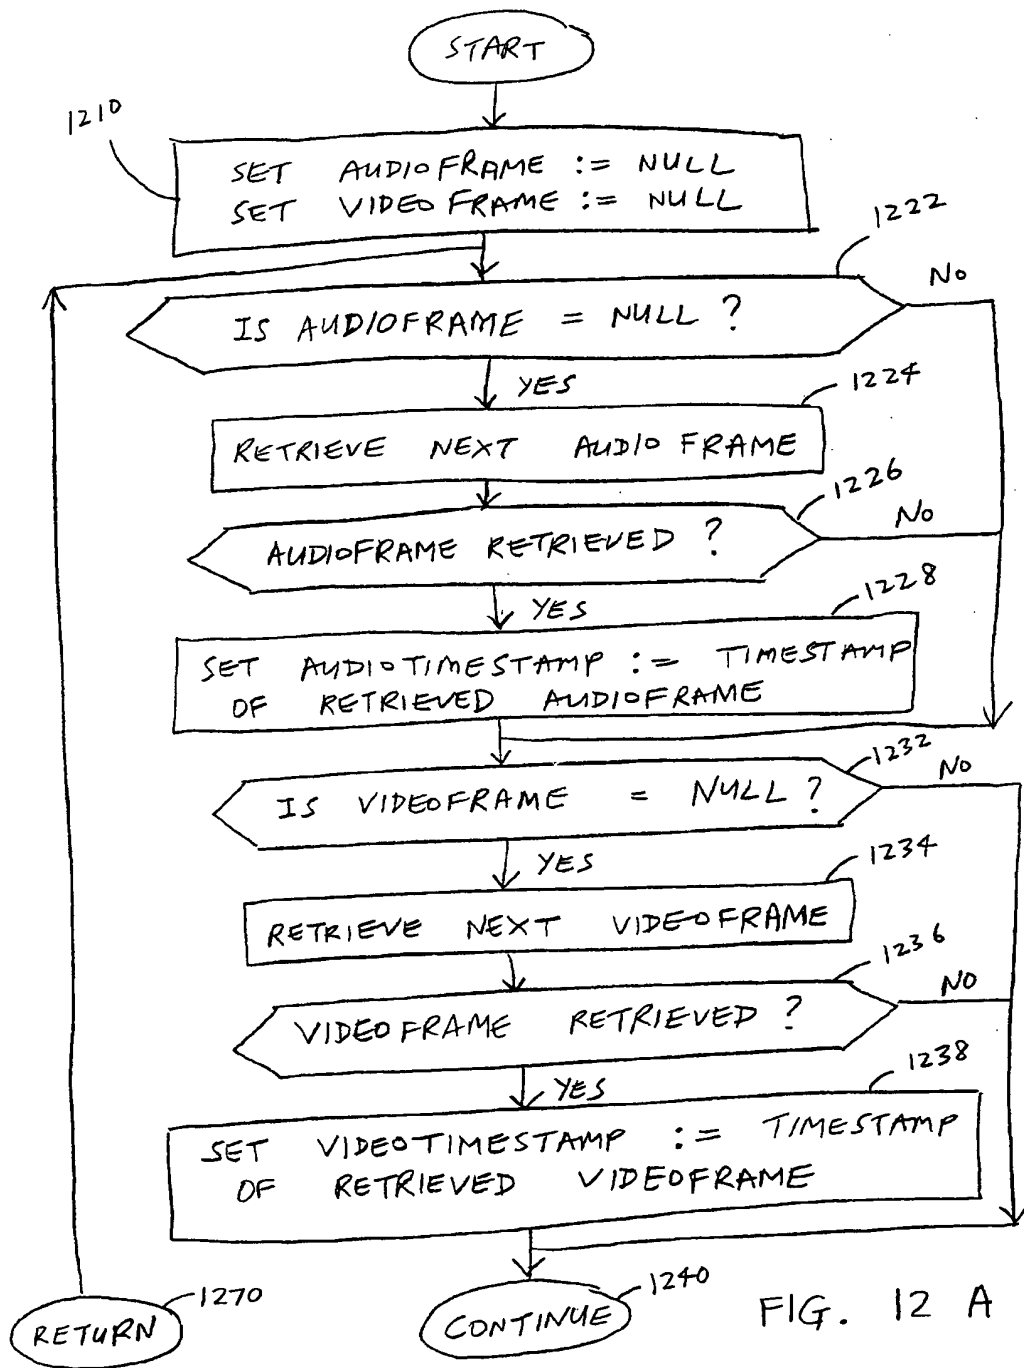 START
1210
SET AUDIOFRAME := NULL
SET VIDEOFRAME := NULL
1222
IS AUDIOFRAME = NULL ?
NO
YES
1224
RETRIEVE NEXT AUDIO FRAME
1226
AUDIOFRAME RETRIEVED ?
NO
YES
1228
SET AUDIOTIMESTAMP := TIMESTAMP
OF RETRIEVED AUDIOFRAME
1232
IS VIDEOFRAME = NULL ?
NO
YES
1234
RETRIEVE NEXT VIDEOFRAME
1236
VIDEOFRAME RETRIEVED ?
NO
YES
1238
SET VIDEOTIMESTAMP := TIMESTAMP
OF RETRIEVED VIDEOFRAME
1270
RETURN
1240
CONTINUE
FIG. 12 A